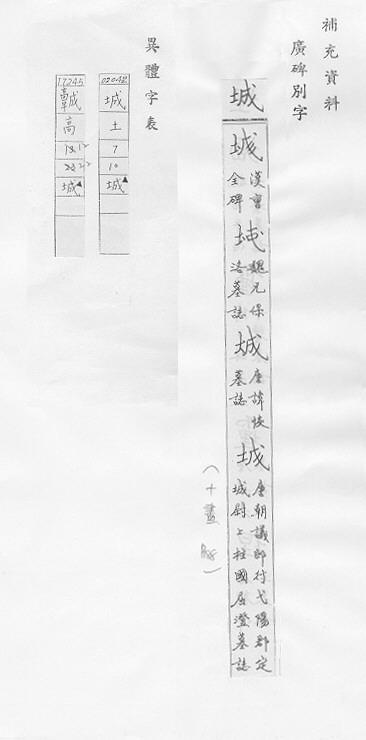 補充資料
廣碑別字
城
城
漢曹
全碑
城
魏元保
洛墓誌
城
唐諱
墓誌
城
唐朝議郎行弋陽郡定
城尉上柱國屈澄墓誌
(十畫
異體字表
02042
城
土
7
10
城▲
17245
高
城▲